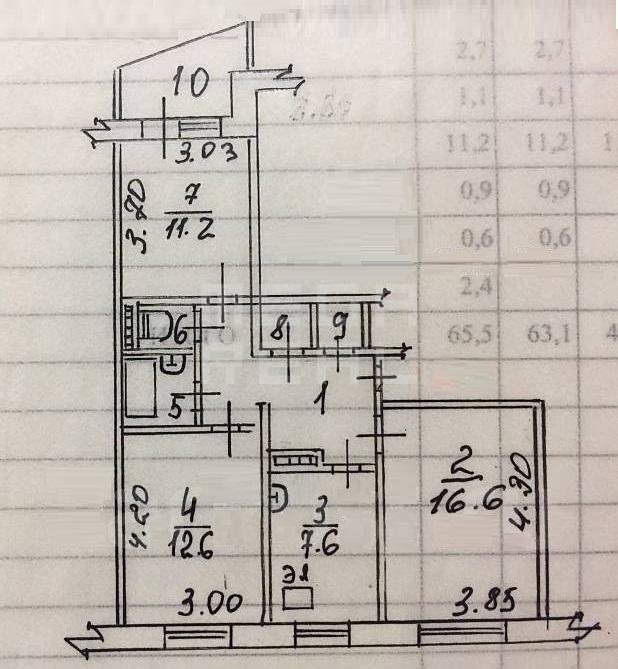 10
3.03
3.70
7
11.2
6
8
9
5
1
2
16.6
4.30
4.20
4
12.6
3
7.6
ЭЛ
3.00
3.85
2,7 2,7
1,1 1,1
11,2 11,2 1
0,9 0,9
0,6 0,6
2,4
65,5 63,1 4